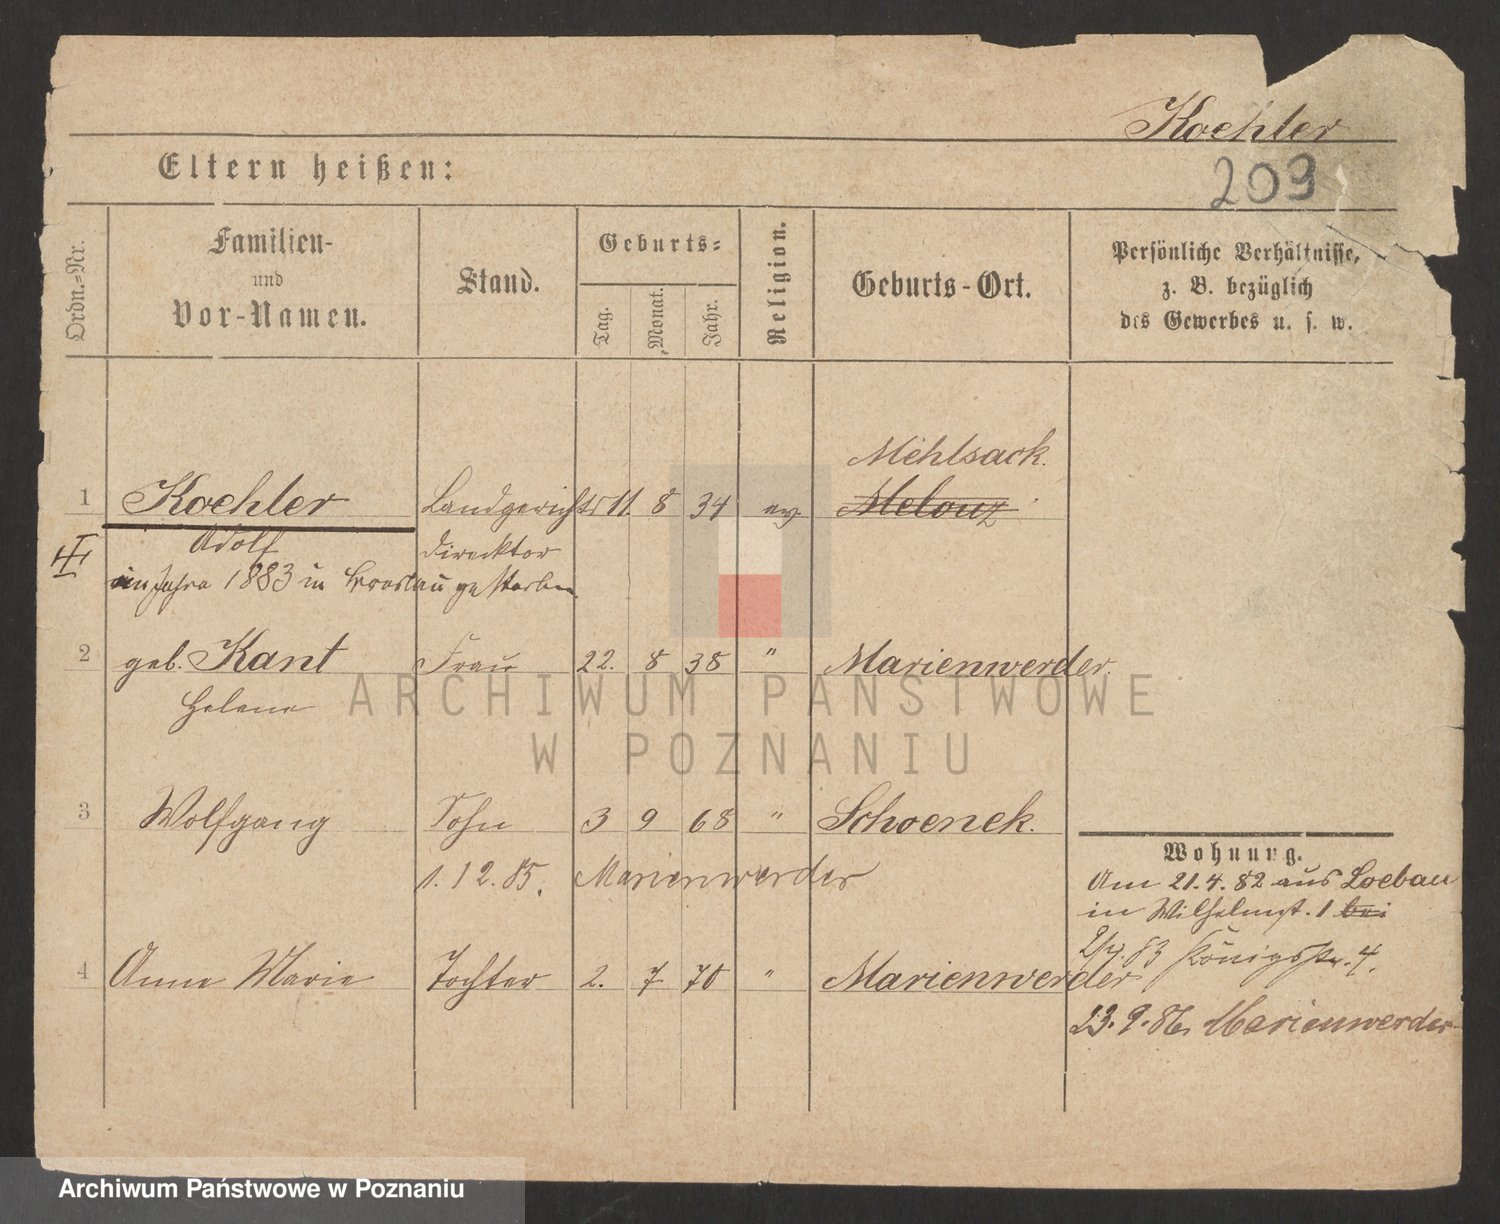 Koehler
209
Eltern heißen:
Ordn.-Nr.
Familien-
und
Vor-Namen.
Stand.
Geburts-
Tag.
Monat.
Jahr.
Religion.
Geburts-Ort.
Persönliche Verhältnisse,
z. B. bezüglich
des Gewerbes u. s. w.
Mehlsack.
1 Koehler Landgerichts 11. 8 34 ev. Melouz
Adolf Direcktor
im Jahre 1883 in Breslau gestorben.
2 geb. Kant Frau 22. 8 38 " Marienwerder.
Helene
ARCHIWUM PAŃSTWOWE
W POZNANIU
3 Wolfgang Sohn 3 9 68 " Schoenek.
1. 12. 85. Marienwerder
Wohnung.
Am 21.4.82 aus Loebau
in Wilhelmst. 1 bei
83 Königsstr. 4.
4 Anna Marie Tochter 2. 7 70 " Marienwerder
23.9.86. Marienwerder
Archiwum Państwowe w Poznaniu